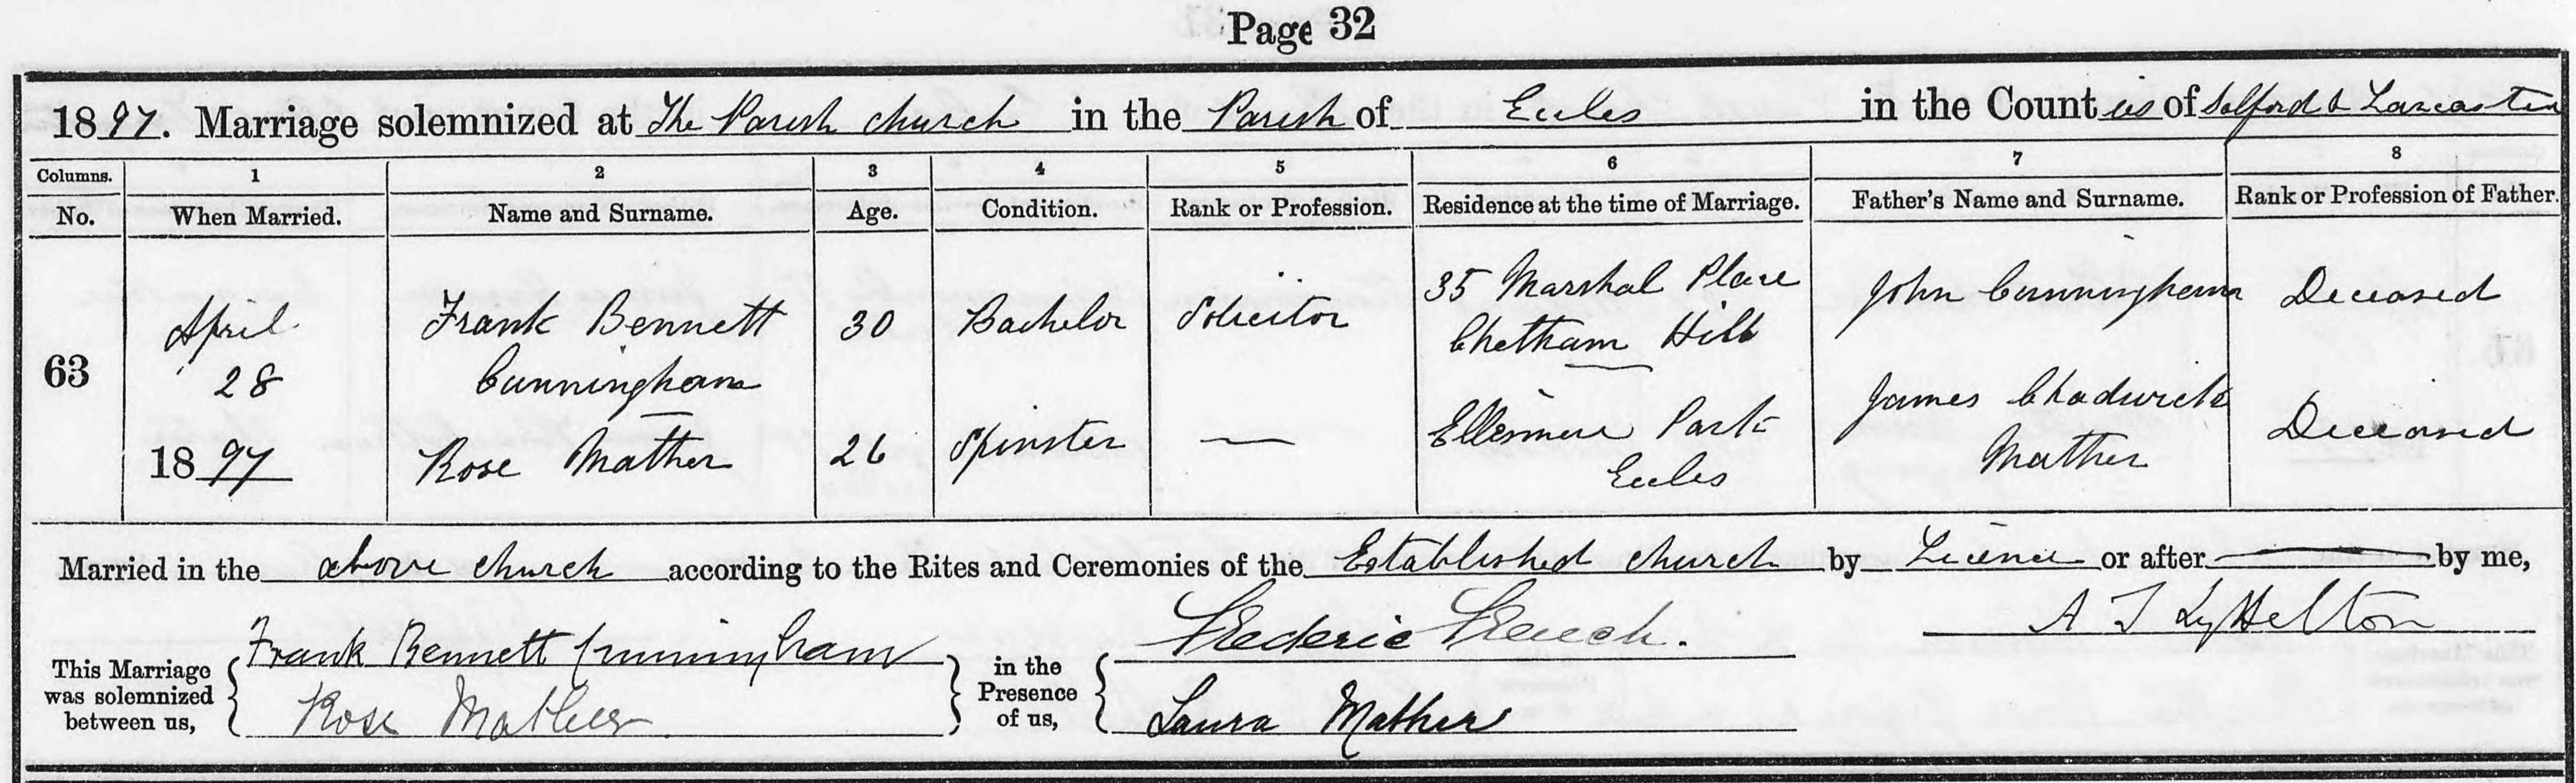 Page 32
1897. Marriage solemnized at The Parish church in the Parish of Eccles in the Counties of Salford & Lancaster
Columns. 1 2 3 4 5 6 7 8
No. When Married. Name and Surname. Age. Condition. Rank or Profession. Residence at the time of Marriage. Father's Name and Surname. Rank or Profession of Father.
63
April
28
1897
Frank Bennett
Cunningham
30
Bachelor
Solicitor
35 Marshal Place
Chetham Hill
John Cunningham
Deceased
Rose Mather
26
Spinster
—
Ellesmere Park
Eccles
James Chadwick
Mather
Deceased
Married in the above church according to the Rites and Ceremonies of the Established church by Licence or after — by me,
A T Lyttelton
This Marriage
was solemnized
between us,
Frank Bennett Cunningham
Rose Mather
in the
Presence
of us,
Frederic
Laura Mather